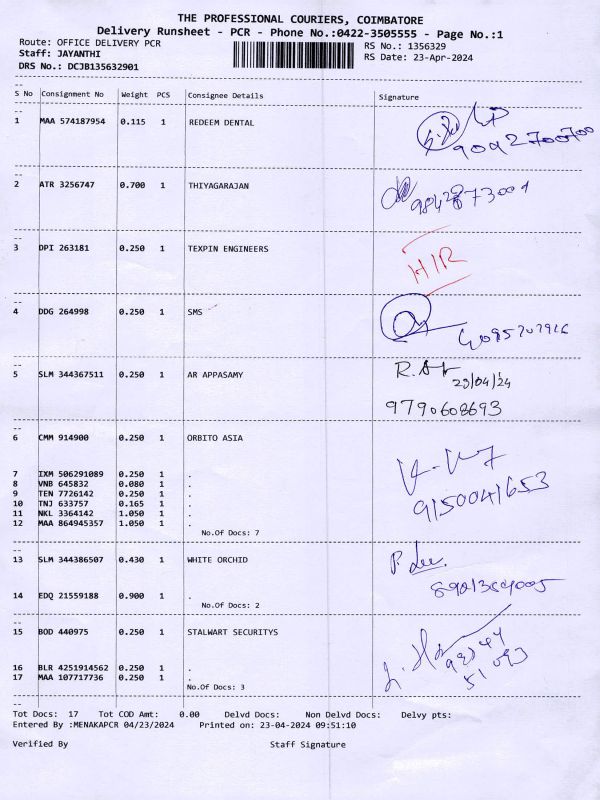 THE PROFESSIONAL COURIERS, COIMBATORE
Delivery Runsheet - PCR - Phone No.:0422-3505555 - Page No.:1
Route: OFFICE DELIVERY PCR
RS No.: 1356329
Staff: JAYANTHI
RS Date: 23-Apr-2024
DRS No.: DCJB135632901
S No Consignment No Weight PCS Consignee Details Signature
1 MAA 574187954 0.115 1 REDEEM DENTAL
9092700700
2 ATR 3256747 0.700 1 THIYAGARAJAN
3 DPI 263181 0.250 1 TEXPIN ENGINEERS
H/R
4 DDG 264998 0.250 1 SMS
5 SLM 344367511 0.250 1 AR APPASAMY
23/04/24
9790608693
6 CMM 914900 0.250 1 ORBITO ASIA
7 IXM 506291089 0.250 1 .
8 VNB 645832 0.080 1 .
9 TEN 7726142 0.250 1 .
10 TNJ 633757 0.165 1 .
11 NKL 3364142 1.050 1 .
12 MAA 864945357 1.050 1 .
9150041653
No.Of Docs: 7
13 SLM 344386507 0.430 1 WHITE ORCHID
14 EDQ 21559188 0.900 1 .
No.Of Docs: 2
15 BOD 440975 0.250 1 STALWART SECURITYS
16 BLR 4251914562 0.250 1 .
17 MAA 107717736 0.250 1 .
No.Of Docs: 3
Tot Docs: 17 Tot COD Amt: 0.00 Delvd Docs: Non Delvd Docs: Delvy pts:
Entered By :MENAKAPCR 04/23/2024 Printed on: 23-04-2024 09:51:10
Verified By Staff Signature